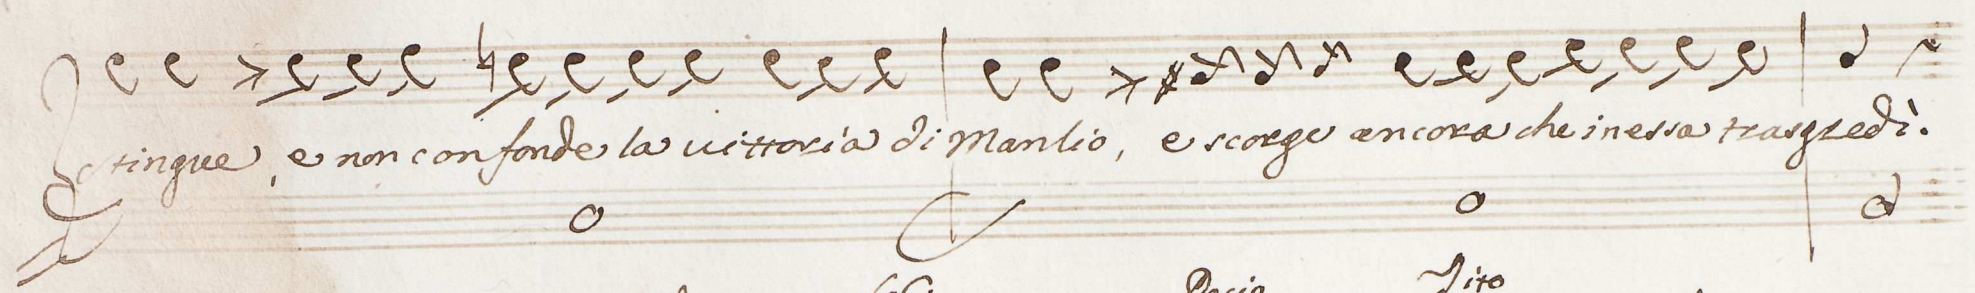 stingue, e non confonde la vittoria di Manlio, e scorge ancora che in essa trasgredì.
Tito